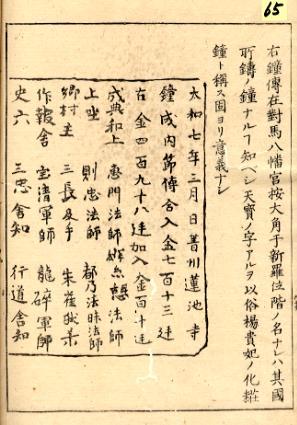 65
右鐘傳在對馬八幡宮按大角于新羅位階ノ名ナレハ其國
所鑄ノ鐘ナルフ知ヘシ天寳ノ字アルヲ以俗楊貴妃ノ化粧
鐘ト稱ス固ヨリ意義ナシ
太和七年三月日菁州蓮池寺
鐘成內節傳合入金七百十三廷
古金四百九十八廷加入金百十廷
成典和上 惠門法師 法師
上坐 則忠法師 都乃法 法師
鄉村主 三長及干 朱雀
作報舍 寳清軍師 龍 軍師
史六 三忠舍知 行道舍知